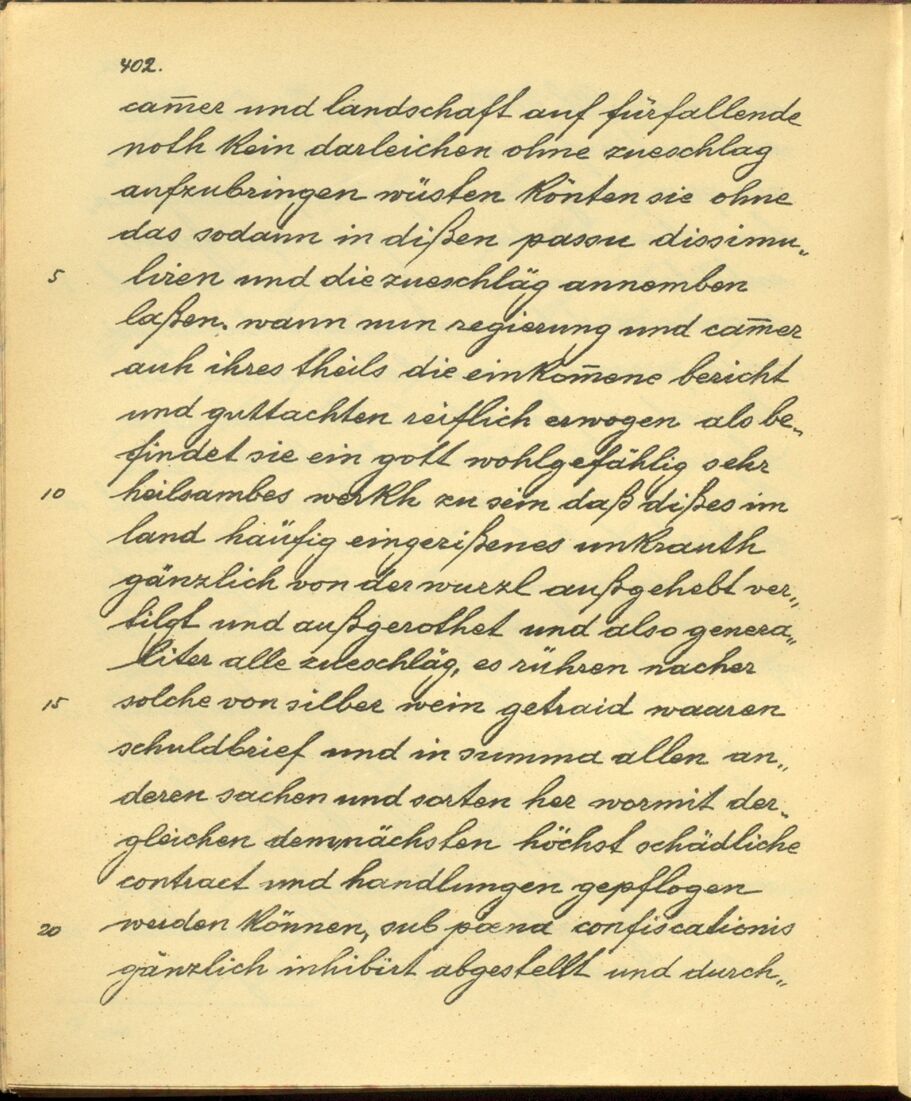 402.
cam̄er und landschaft auf fürfallende
noth kein darleichen ohne zueschlag
aufzubringen wüsten könten sie ohne
das sodann in dißen passu dissimu„
5 liren und die zueschläg annemben
laßen. wann nun regierung und cam̄er
auh ihres theils die einkom̄ene bericht
und guttachten reiflich erwogen als be„
findet sie ein gott wohlgefählig sehr
10 heilsambes werkh zu sein daß dißes im
land häüfig eingerißenes unkrauth
gänzlich von der wurzl außgehebt ver„
tilgt und außgerothet und also genera„
liter alle zueschläg, es rühren nacher
15 solche von silber wein getraid waaren
schuldbrief und in summa allen an„
deren sachen und sorten her wormit der„
gleichen dem nächsten höchst schädliche
contract und handlungen gepflogen
20 werden können, sub pœna confiscationis
gänzlich inhibirt abgestellt und durch„